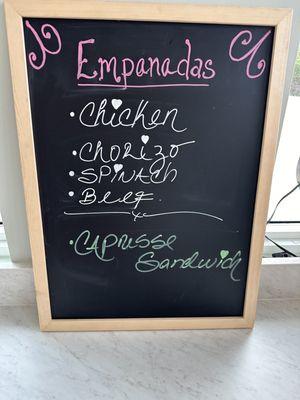 Empanadas
• Chicken
• CHORIZO
• SPINACH
• Beef.
• CAPRESSE
Sandwich